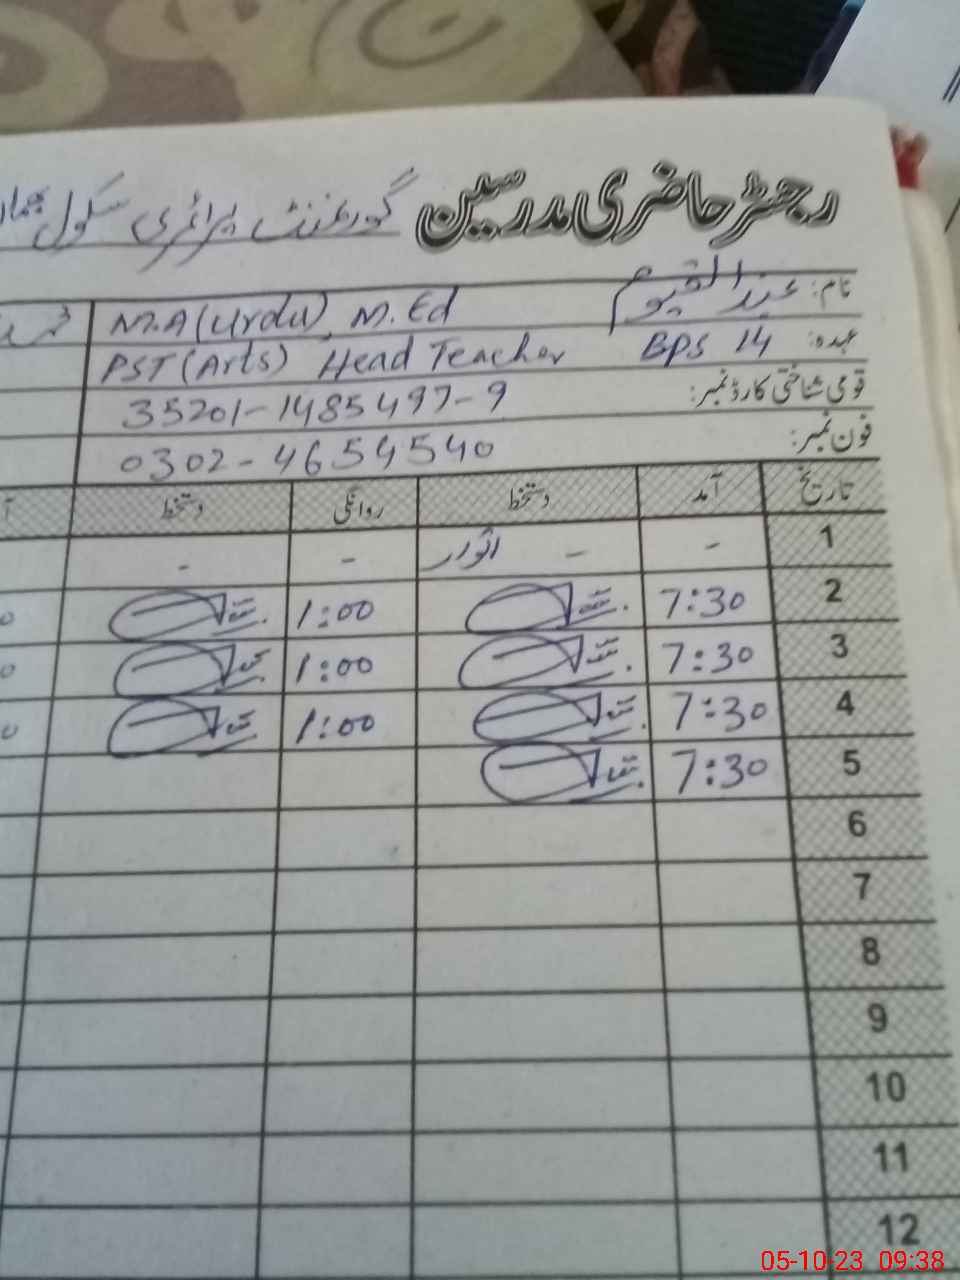 رجسٹر حاضری مدرسین گورنمنٹ پرائمری سکول
نام: عبدالقیوم M.A (Urdu), M.Ed
عہدہ: BPS 14 PST (Arts) Head Teacher
قومی شناختی کارڈ نمبر: 35201-1485497-9
فون نمبر: 0302-4654540
تاریخ آمد دستخط روانگی دستخط
1 - - اتوار - -
2 7:30 1:00
3 7:30 1:00
4 7:30 1:00
5 7:30
6
7
8
9
10
11
12
05-10-23 09:38